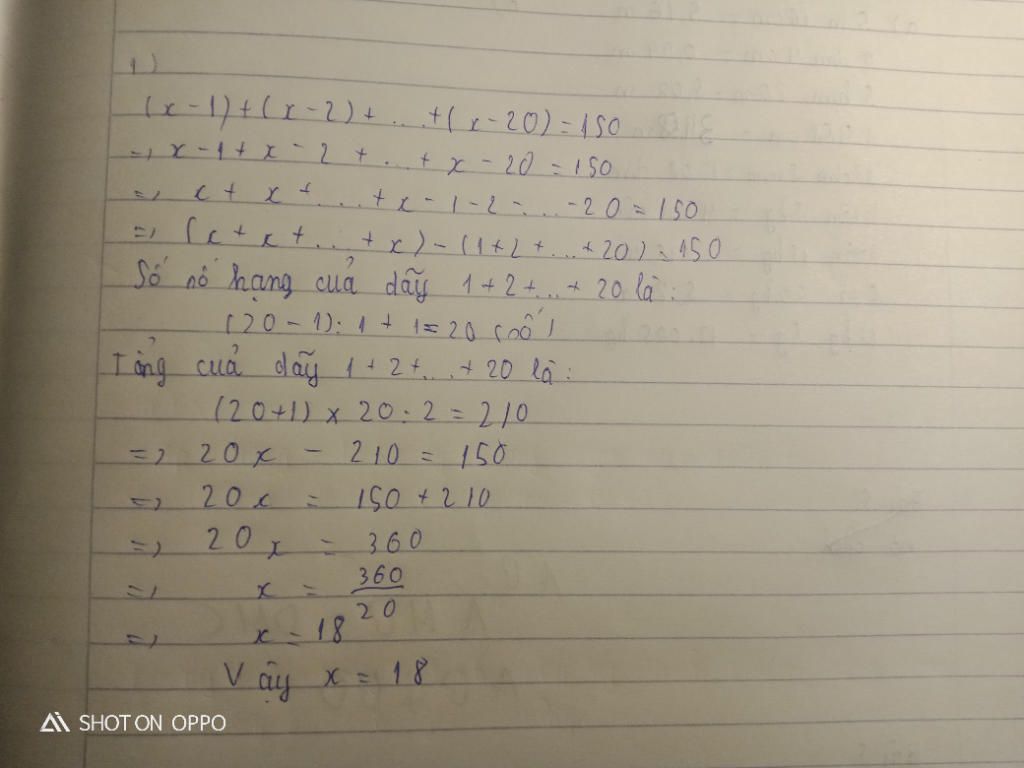 1)
(x-1)+(x-2)+...+(x-20)=150
=> x-1+x-2+...+x-20=150
=> x+x+...+x-1-2-...-20=150
=> (x+x+...+x)-(1+2+...+20)=150
Số số hạng cuả dãy 1+2+...+20 là:
(20-1):1+1=20 (số)
Tổng cuả dãy 1+2+...+20 là:
(20+1)x20:2=210
=> 20x - 210 = 150
=> 20x = 150+210
=> 20x = 360
=> x = 360/20
=> x = 18
Vậy x = 18
SHOT ON OPPO